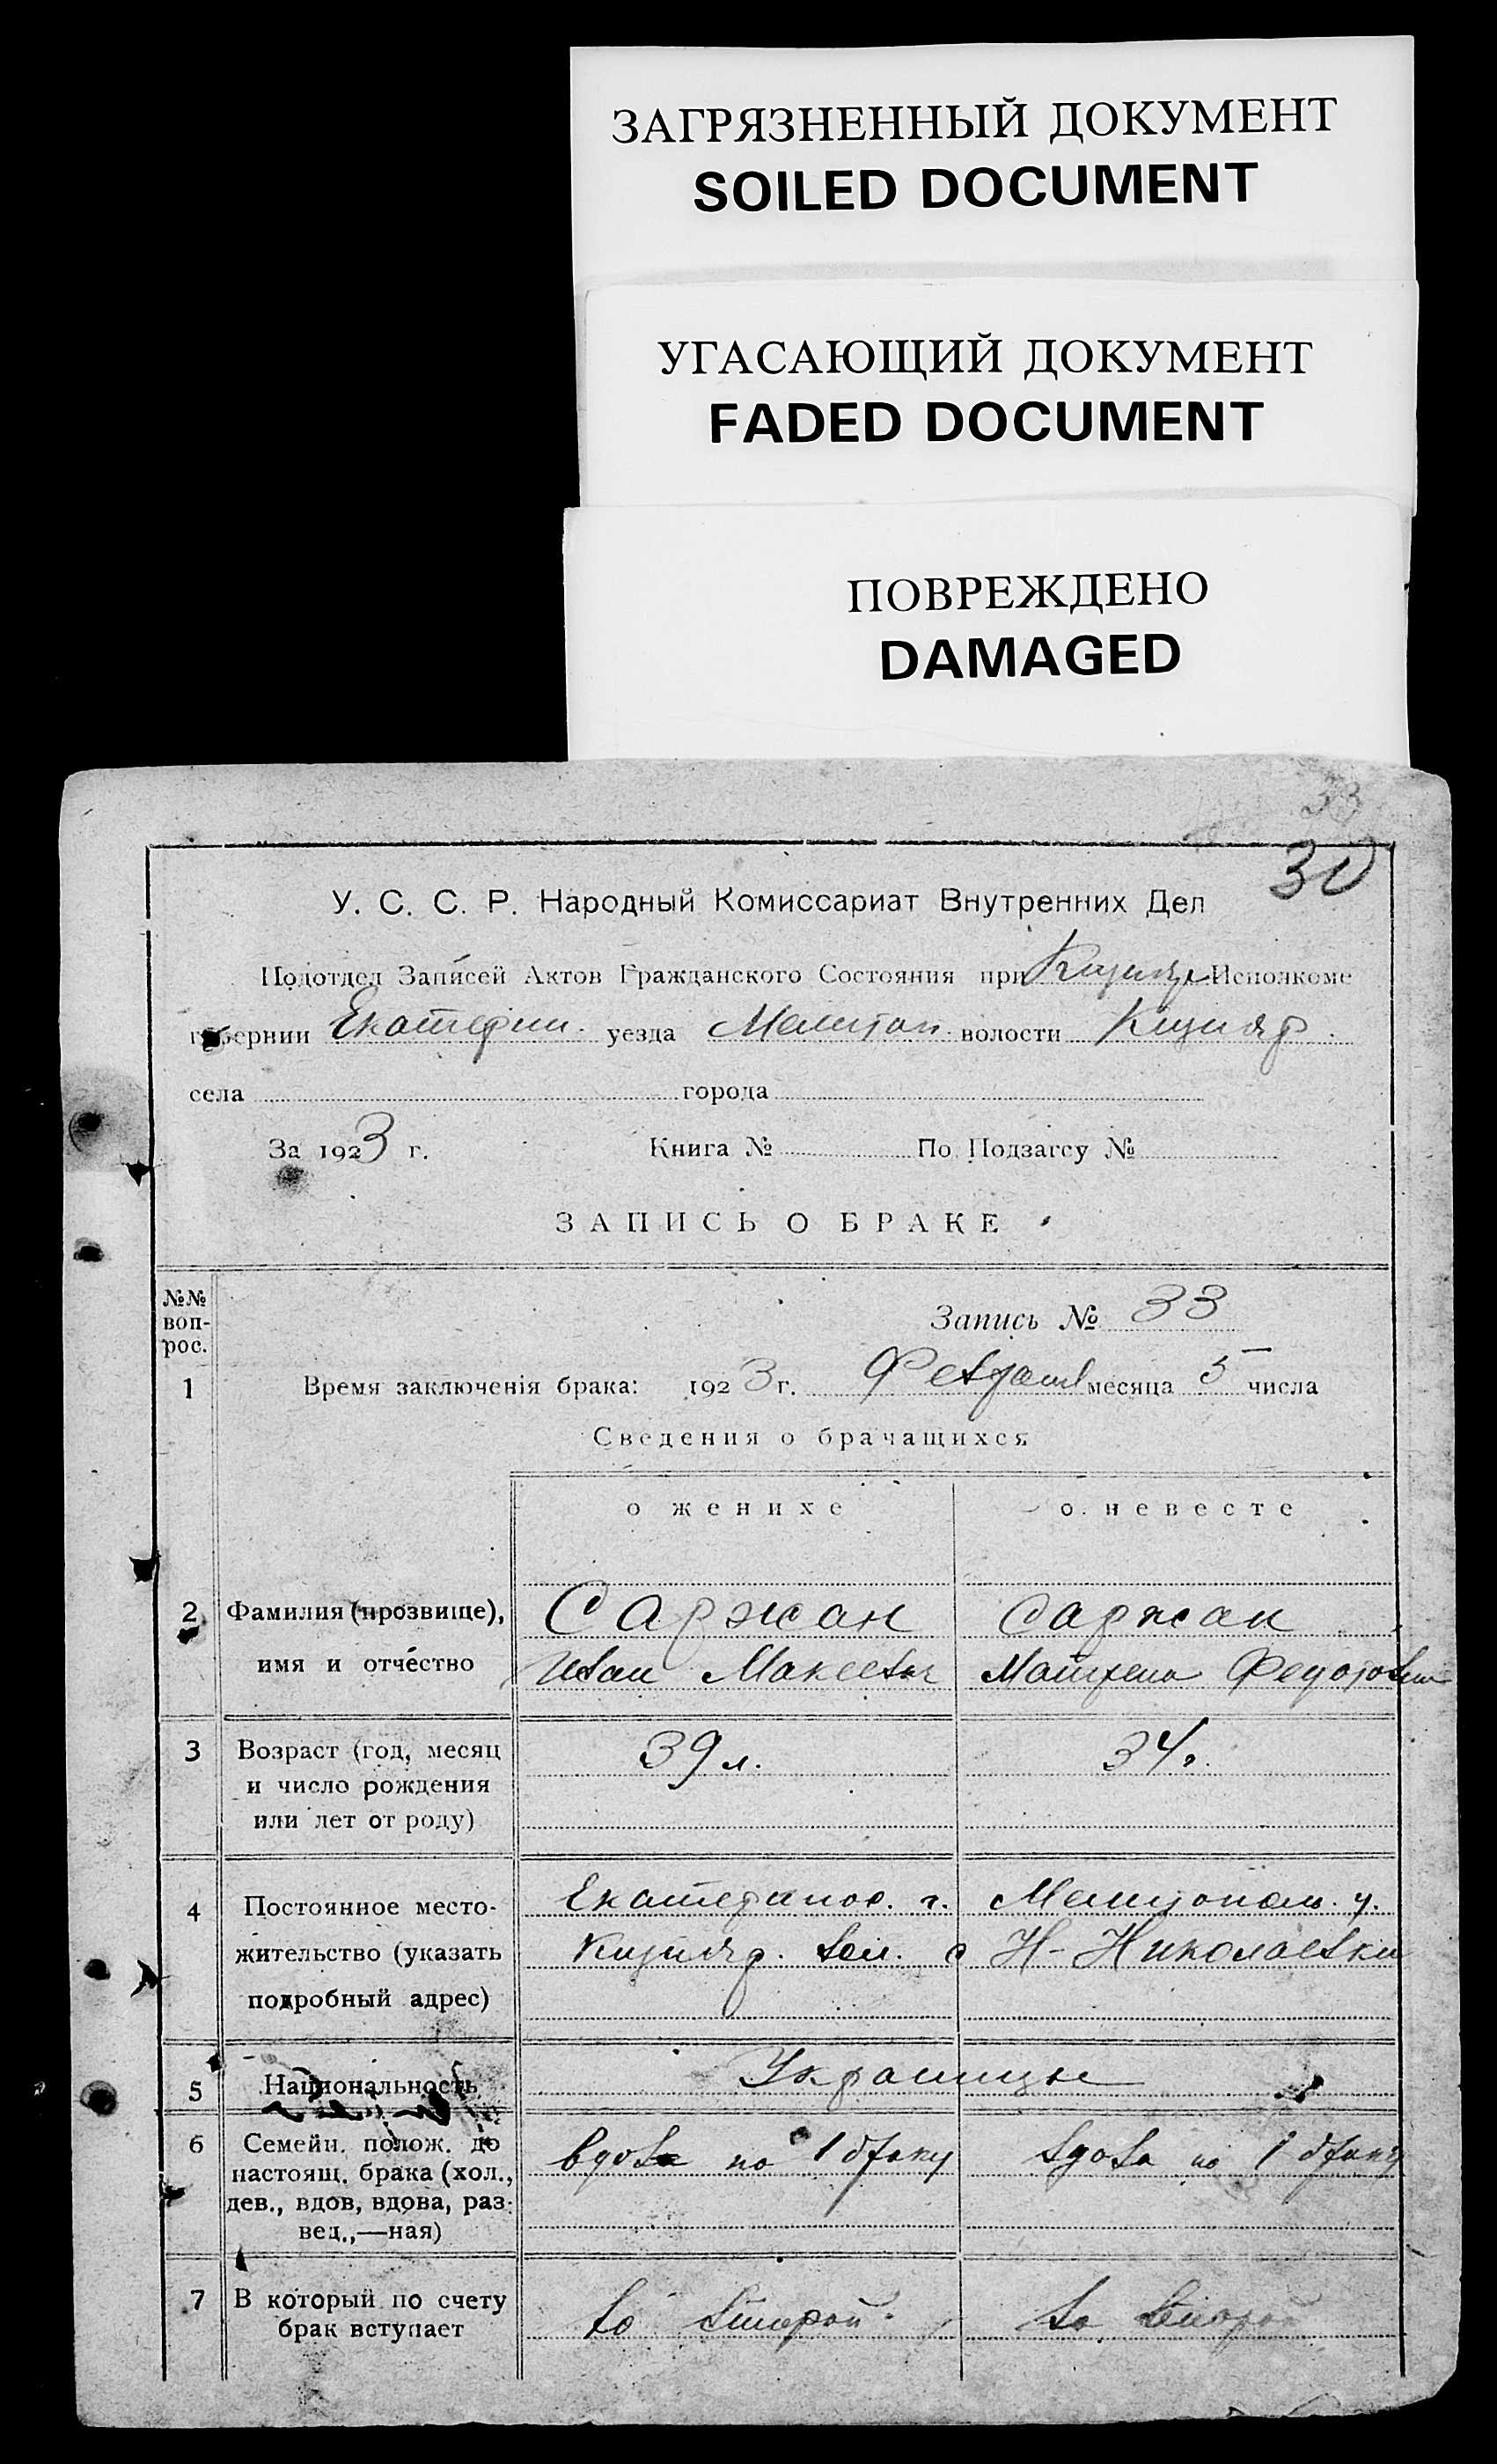 ЗАГРЯЗНЕННЫЙ ДОКУМЕНТ
SOILED DOCUMENT
УГАСАЮЩИЙ ДОКУМЕНТ
FADED DOCUMENT
ПОВРЕЖДЕНО
DAMAGED
33
30
У. С. С. Р. Народный Комиссариат Внутренних Дел
Подотдел Записей Актов Гражданского Состояния при Исполкоме
губернии Екатерин. уезда Мелитоп. волости Кизияр.
села города
За 1923 г. Книга № По Подзагсу №
ЗАПИСЬ О БРАКЕ
№№ вопрос.
Запись № 33
1 Время заключенія брака: 1923 г. Февраля месяца 5 числа
Сведения о брачащихся
о женихе о невесте
2 Фамилия (прозвище), Саржан Саржан
имя и отчество Иван Макеевич Матрена Федотовна
3 Возраст (год, месяц 39 л. 34 г.
и число рождения
или лет от роду)
4 Постоянное место- Екатеринос. г. Мелитополь. у.
жительство (указать Кизияр. вол. с Н-Николаевки
подробный адрес)
5 Национальность Украинцы
6 Семейн. полож. до вдов по 1 браку вдова по 1 браку
настоящ. брака (хол.,
дев., вдов, вдова, раз-
вед.,—ная)
7 В который по счету во второй. во второй
брак вступает